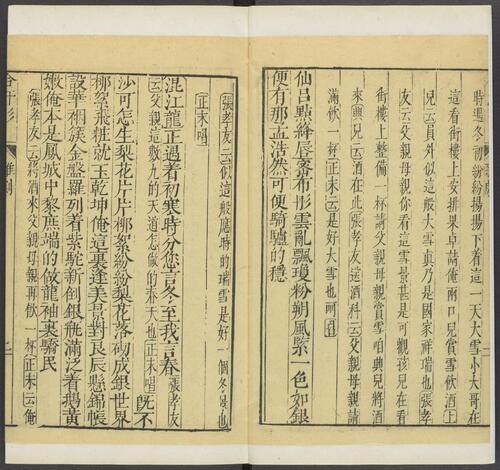 時遇冬初紛紛揚揚下着這一天大雪小大哥在
這看街樓上安排果卓請俺兩口兒賞雪飲酒卜
兒云員外似這般大雪真乃是國家祥瑞也張孝
友云父親母親你看這雪景甚是可觀孩兒在看
街樓上整備一杯請父親母親賞雪咱興兒將酒
來興兒云酒在此張孝友送酒科云父親母親請
滿飲一杯正末云是好大雪也呵唱
仙呂點絳唇密布彤雲亂飄瓊粉朔風緊一色如銀
便有那孟浩然可便騎驢的穩
張孝友云似這般應時的瑞雪是好一個冬景也
正末唱
混江龍正遇着初寒時分您言冬至我言春張孝友
云父親這數九的天道怎做的春天也正末唱旣不
沙可怎生梨花片片柳絮紛紛梨花落砌成銀世界
柳絮飛粧就玉乾坤俺這裏逢美景對良辰懸錦帳
設華裀簇金盤羅列着紫駝新倒銀瓶滿泛着鵝黃
嫩俺本是鳳城中黎庶端的做龍袖裏驕民
張孝友云將酒來父親母親再飲一杯正末云俺
合汗衫
雜劇
二